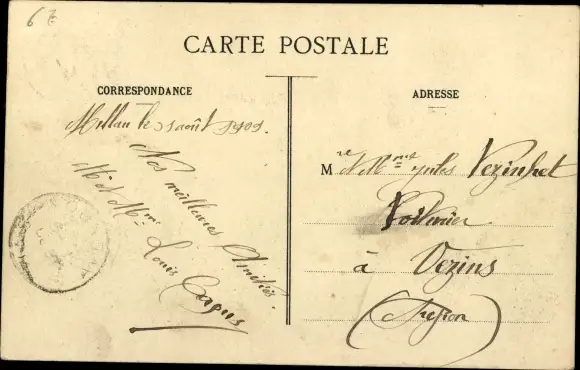 6
CARTE POSTALE
CORRESPONDANCE
Millau le 3 août 1909.
Nos meilleures Amitiés.
M. et Mme Louis
ADRESSE
Mr et Mme Jules Vezinhet
à Vezins
(Aveyron)